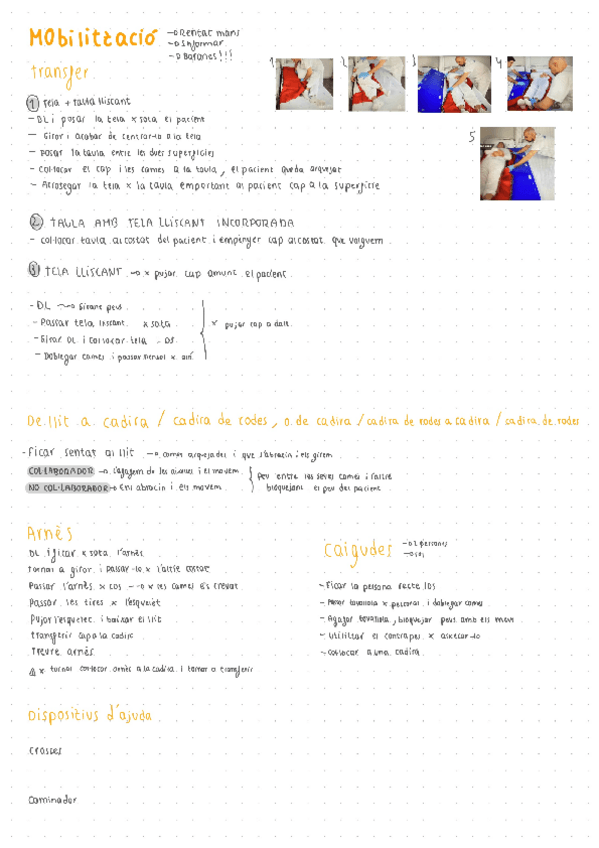 MObilització
→ Rentar mans
→ Informar
→ Baranes!!!
transfer
1 2 3 4
5
① Tela + taula lliscant
- DL i posar la tela x sota el pacient
- Girar i acabar de centrar-lo a la tela
- Posar la taula entre les dues superfícies
- Col·locar el cap i les cames a la taula, el pacient queda arquejat
- Arrosegar la tela x la taula emportant al pacient cap a la superfície
② TAULA AMB TELA LLISCANT INCORPORADA
- Col·locar taula al costat del pacient i empinyer cap al costat que volguem.
③ TELA LLISCANT → x pujar cap amunt el pacient.
- DL → Girare peus.
- Passar tela lliscant x sota.
- Girar DL i col·locar tela
- Doblegar cames i passar llençol x
x pujar cap a dalt.
De llit a cadira / cadira de rodes, o de cadira / cadira de rodes a cadira / cadira de rodes
- Ficar sentat al llit → cames arquejades i que s'abracin i els girem.
COL·LABORADOR → l'agafem de les aixelles i el movem.
NO COL·LABORADOR → Ens abracin i els movem.
Peu entre les seves cames i l'altre
bloquejant el peu del pacient.
Arnès
DL i ficar x sota l'arnès
Tornar a girar i passar-lo x l'altre costat
Passar l'arnès x cos → x les cames es creuat
Passar les tires x l'esquelet
Pujar l'esquelet i baixar el llit
Transferir cap a la cadira
Treure arnès.
⚠ x tornar col·locar arnès a la cadira i tornar a transferir
Caigudes
→ 2 persones
- Ficar la persona recte
- Passar tovallola x pectoral i doblegar cames
- Agafar tovallola, bloquejar peus amb els meus
- Utilitzar el contrapes x aixecar-lo
- Col·locar a una cadira.
Dispositius d'ajuda
Crosses
Caminador